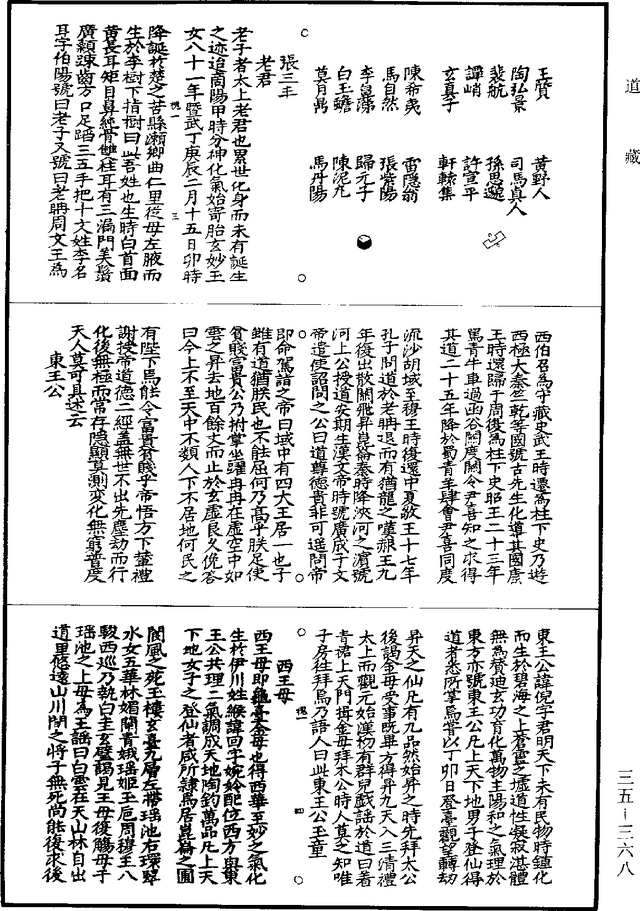 道藏
王贊 黄野人
陶弘景 司馬真人
裴航 孫思邈
譚峭 許宣平
玄真子 軒轅集
陳希夷 雷隱翁
馬自然 張紫陽
李昌藻 歸元子
白玉蟾 陳泥丸
莫月鼎 馬丹陽
張三丰
老君
老子者太上老君也累世化身而未有誕生
之迹迨商陽甲時分神化氣始寄胎玄妙玉
女八十一年暨武丁庚辰二月十五日卯時
降誕於楚之苦縣瀬鄉曲仁里從母左腋而
生於李樹下指樹曰此吾姓也生時白首面
黄長耳矩目鼻純骨雙柱耳有三漏門美鬚
廣顙疎齒方口足蹈三五手把十文姓李名
耳字伯陽號曰老子又號曰老聃周文王為
西伯召為守藏史武王時遷為柱下史乃遊
西極大秦竺乾等國號古先生化導其國康
王時還歸于周復為柱下史昭王二十三年
駕青牛車過函谷關度關令尹喜知之求得
其道二十五年降於蜀青羊肆會尹喜同度
流沙胡域至穆王時復還中夏敬王十七年
孔子問道於老聃退而有猶龍之嘆赧王九
年復出散關飛昇崑崙秦時降陜河之濱號
河上公授道安期生漢文帝時號廣成子文
帝遣使詔問之公曰道尊德貴非可遥問帝
即命駕詣之帝曰域中有四大王居一也子
雖有道猶朕民也不能屈何乃高乎朕足使
貧賤富貴公乃拊掌坐躍冉冉在虚空中如
雲之昇去地百餘丈而止於玄虚良久俛答
曰今上不至天中不類人下不居地何民之
有陛下焉能令富貴貧賤乎帝悟方下輦禮
謝授帝道德二經蓋無世不出先塵劫而行
化後無極而常存隱顯莫測變化無窮普度
天人莫可具述云
東王公
東王公諱倪字君明天下未有民物時鍾化
而生於碧海之上蒼靈之墟道性凝寂湛體
無為贊迪玄功育化萬物主陽和之氣理於
東方亦號東王公凡上天下地男子登仙得
道者悉所掌焉嘗以丁卯日登臺觀望轉劫
昇天之仙凡有九品然始昇之時先拜太公
後謁金母受事既畢方得昇九天入三清禮
太上而觀元始漢初有群兒戲謡於道曰着
青裙上天門揖金母拜木公時人莫之知唯
子房往拜焉乃語人曰此東王公玉童
西王母
西王母即龜臺金母也得西華至妙之氣化
生於伊川姓緱諱回字婉妗配位西方與東
王公共理二氣調成天地陶鈞萬品凡上天
下地女子之登仙者咸所隷焉居崑崙之圃
閬風之苑玉樓玄臺九層左帶瑶池右環翠
水女五華林媚蘭青娥瑶姬玉巵周穆王八
駿西巡乃執白圭玄璧謁見王母復觴母于
瑶池之上母為王謡曰白雲在天山林自出
道里悠遠山川間之將子無死尚能復來後
槐一 三
槐一 四
三五—三六八